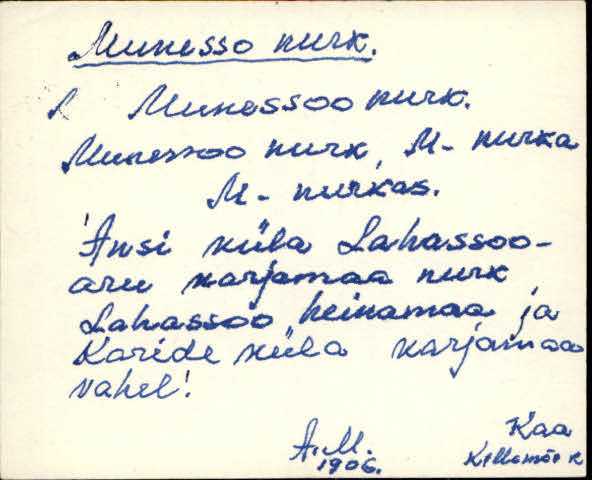 Munesso nurk.
Munessoo nurk.
Munessoo nurk, M- nurka
M- nurkas.
Ansi küla Lahassoo-
aru karjamaa nurk
Lahassoo heinamaa ja
Karide küla karjamaa
vahel!
Kaa
A.M.
1906.